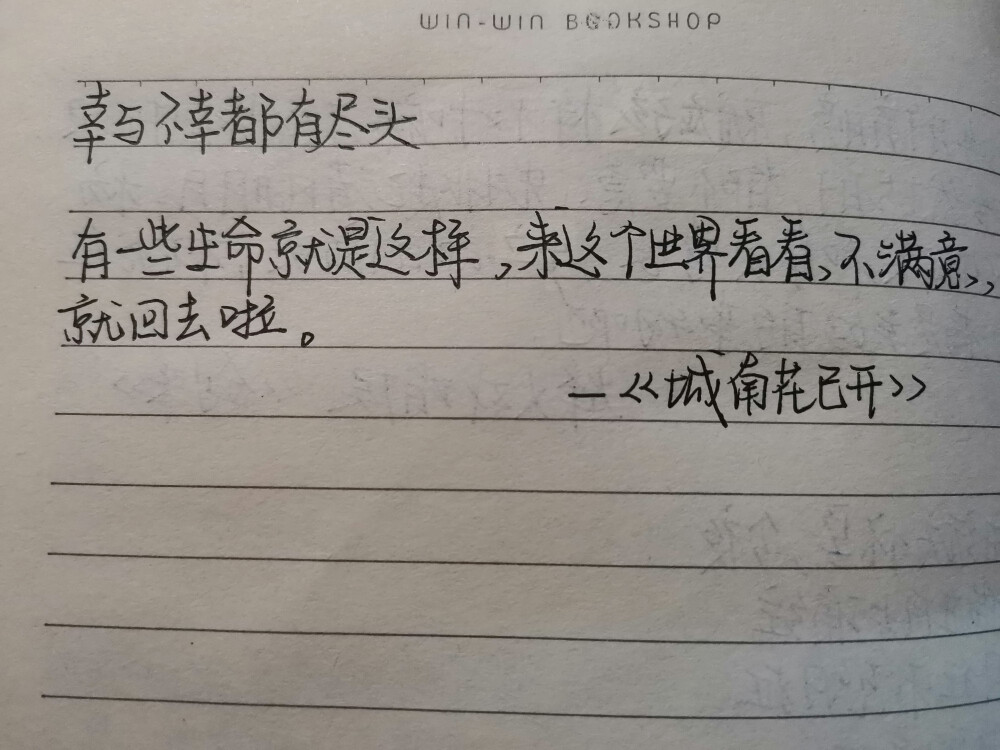 WIN-WIN BOOKSHOP
幸与不幸都有尽头
有些生命就是这样,来这个世界看看、不满意,,
就回去啦。
—《城南花已开》